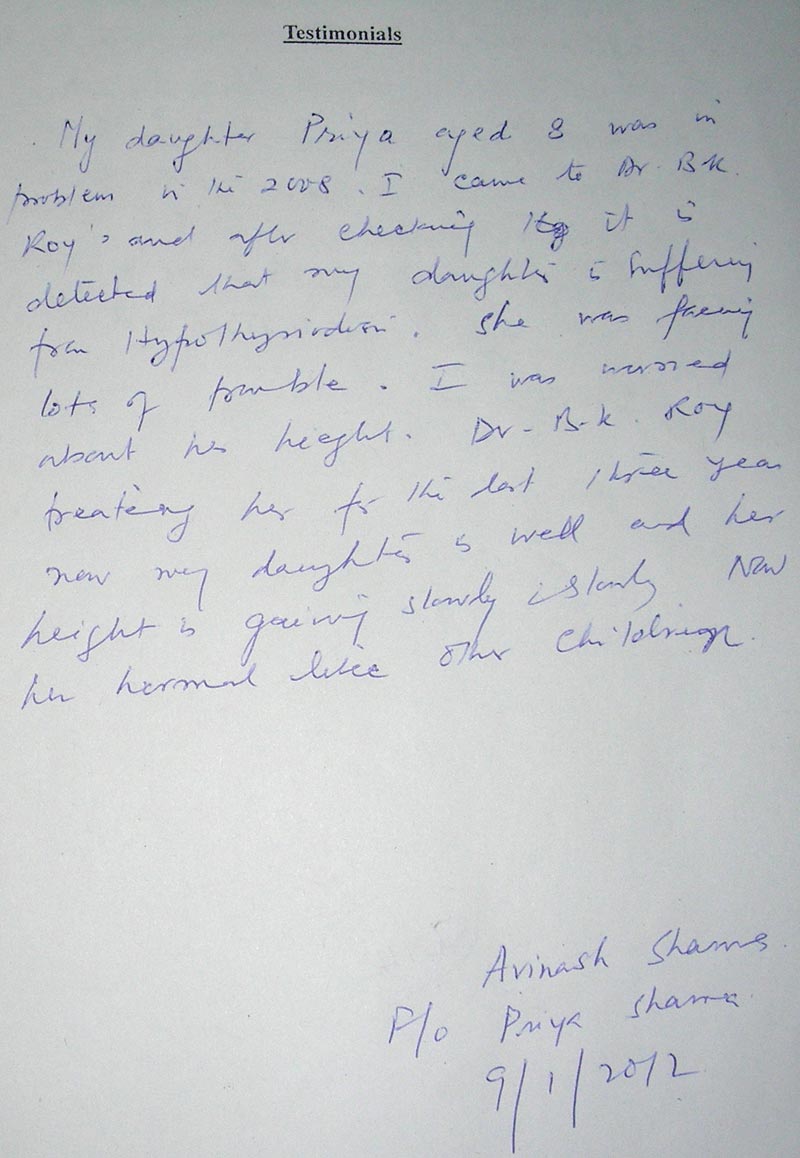 Testimonials
My daughter Priya aged 8 was in
problem in the 2008. I came to Dr. B.K.
Roy's and after checking it is
detected that my daughter is suffering
from Hypothyriodism. She was facing
lots of trouble. I was worried
about her height. Dr. B.K. Roy
treateing her for the last three year
now my daughter is well and her
height is gaining slowly slowly Now
her normal like other
Avinash Sharma.
F/o Priya Sharma
9/1/2012